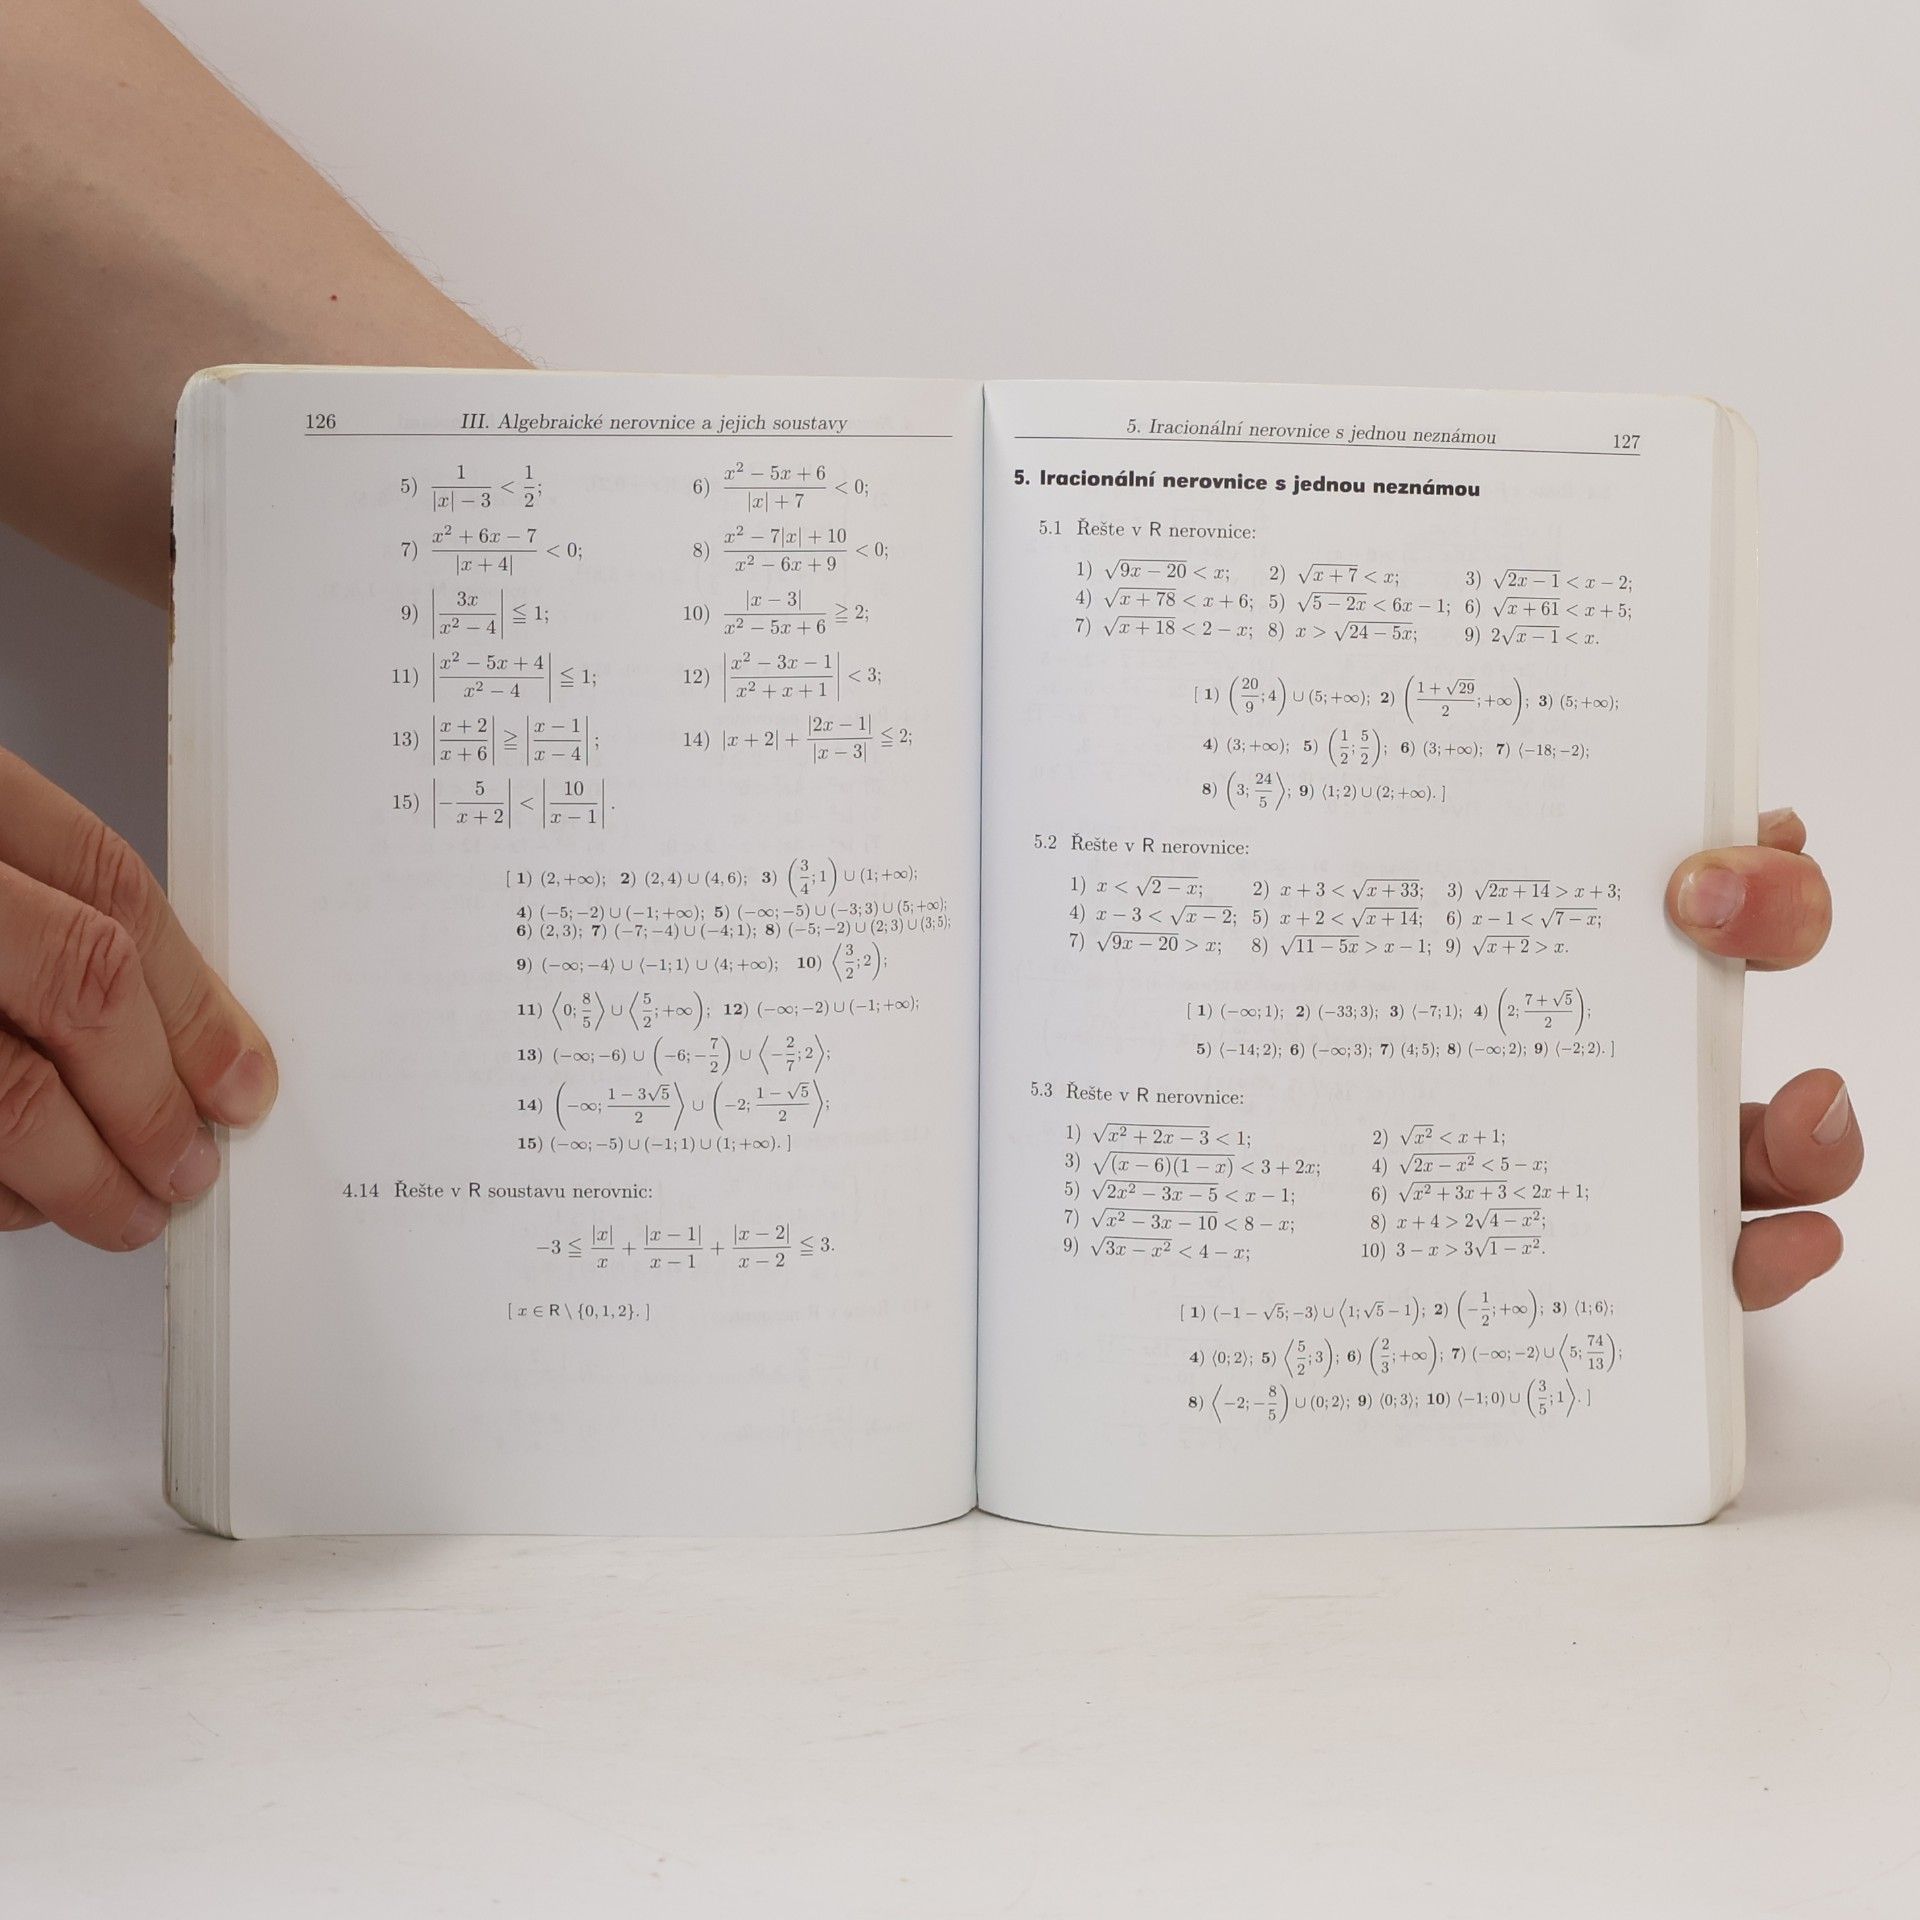 126 III. Algebraické nerovnice a jejich soustavy
5) \frac{1}{|x| − 3} < \frac{1}{2}; 6) \frac{x² − 5x + 6}{|x| + 7} < 0;
7) \frac{x² + 6x − 7}{|x + 4|} < 0; 8) \frac{x² − 7|x| + 10}{x² − 6x + 9} < 0;
9) |\frac{3x}{x² − 4}| ≦ 1; 10) \frac{|x − 3|}{x² − 5x + 6} ≧ 2;
11) |\frac{x² − 5x + 4}{x² − 4}| ≦ 1; 12) |\frac{x² − 3x − 1}{x² + x + 1}| < 3;
13) |\frac{x + 2}{x + 6}| ≧ |\frac{x − 1}{x − 4}|; 14) |x + 2| + \frac{|2x − 1|}{|x − 3|} ≦ 2;
15) |−\frac{5}{x + 2}| < |\frac{10}{x − 1}|.
[ 1) (2, +∞); 2) (2, 4) ∪ (4, 6); 3) (\frac{3}{4}; 1) ∪ (1; +∞);
4) (−5; −2) ∪ (−1; +∞); 5) (−∞; −5) ∪ (−3; 3) ∪ (5; +∞);
6) (2, 3); 7) (−7; −4) ∪ (−4; 1); 8) (−5; −2) ∪ (2; 3) ∪ (3; 5);
9) (−∞; −4⟩ ∪ ⟨−1; 1⟩ ∪ ⟨4; +∞); 10) ⟨\frac{3}{2}; 2);
11) ⟨0; \frac{8}{5}⟩ ∪ ⟨\frac{5}{2}; +∞); 12) (−∞; −2) ∪ (−1; +∞);
13) (−∞; −6) ∪ (−6; −\frac{7}{2}) ∪ ⟨−\frac{2}{7}; 2⟩;
14) (−∞; \frac{1 − 3√5}{2}⟩ ∪ (−2; \frac{1 − √5}{2}⟩;
15) (−∞; −5) ∪ (−1; 1) ∪ (1; +∞). ]
4.14 Řešte v R soustavu nerovnic:
−3 ≦ \frac{|x|}{x} + \frac{|x − 1|}{x − 1} + \frac{|x − 2|}{x − 2} ≦ 3.
[ x ∈ R \ {0, 1, 2}. ]
5. Iracionální nerovnice s jednou neznámou 127
5. Iracionální nerovnice s jednou neznámou
5.1 Řešte v R nerovnice:
1) √(9x − 20) < x; 2) √(x + 7) < x; 3) √(2x − 1) < x − 2;
4) √(x + 78) < x + 6; 5) √(5 − 2x) < 6x − 1; 6) √(x + 61) < x + 5;
7) √(x + 18) < 2 − x; 8) x > √(24 − 5x); 9) 2√(x − 1) < x.
[ 1) (\frac{20}{9}; 4) ∪ (5; +∞); 2) (\frac{1 + √29}{2}; +∞); 3) (5; +∞);
4) (3; +∞); 5) (\frac{1}{2}; \frac{5}{2}); 6) (3; +∞); 7) ⟨−18; −2);
8) (3; \frac{24}{5}⟩; 9) ⟨1; 2) ∪ (2; +∞). ]
5.2 Řešte v R nerovnice:
1) x < √(2 − x); 2) x + 3 < √(x + 33); 3) √(2x + 14) > x + 3;
4) x − 3 < √(x − 2); 5) x + 2 < √(x + 14); 6) x − 1 < √(7 − x);
7) √(9x − 20) > x; 8) √(11 − 5x) > x − 1; 9) √(x + 2) > x.
[ 1) (−∞; 1); 2) (−33; 3); 3) ⟨−7; 1); 4) (2; \frac{7 + √5}{2});
5) ⟨−14; 2); 6) (−∞; 3); 7) (4; 5); 8) (−∞; 2); 9) ⟨−2; 2). ]
5.3 Řešte v R nerovnice:
1) √(x² + 2x − 3) < 1; 2) √(x²) < x + 1;
3) √((x − 6)(1 − x)) < 3 + 2x; 4) √(2x − x²) < 5 − x;
5) √(2x² − 3x − 5) < x − 1; 6) √(x² + 3x + 3) < 2x + 1;
7) √(x² − 3x − 10) < 8 − x; 8) x + 4 > 2√(4 − x²);
9) √(3x − x²) < 4 − x; 10) 3 − x > 3√(1 − x²).
[ 1) (−1 − √5; −3⟩ ∪ ⟨1; √5 − 1); 2) (−\frac{1}{2}; +∞); 3) ⟨1; 6⟩;
4) ⟨0; 2⟩; 5) ⟨\frac{5}{2}; 3); 6) (\frac{2}{3}; +∞); 7) (−∞; −2⟩ ∪ ⟨5; \frac{74}{13});
8) ⟨−2; −\frac{8}{5}) ∪ (0; 2⟩; 9) ⟨0; 3⟩; 10) ⟨−1; 0) ∪ (\frac{3}{5}; 1⟩. ]